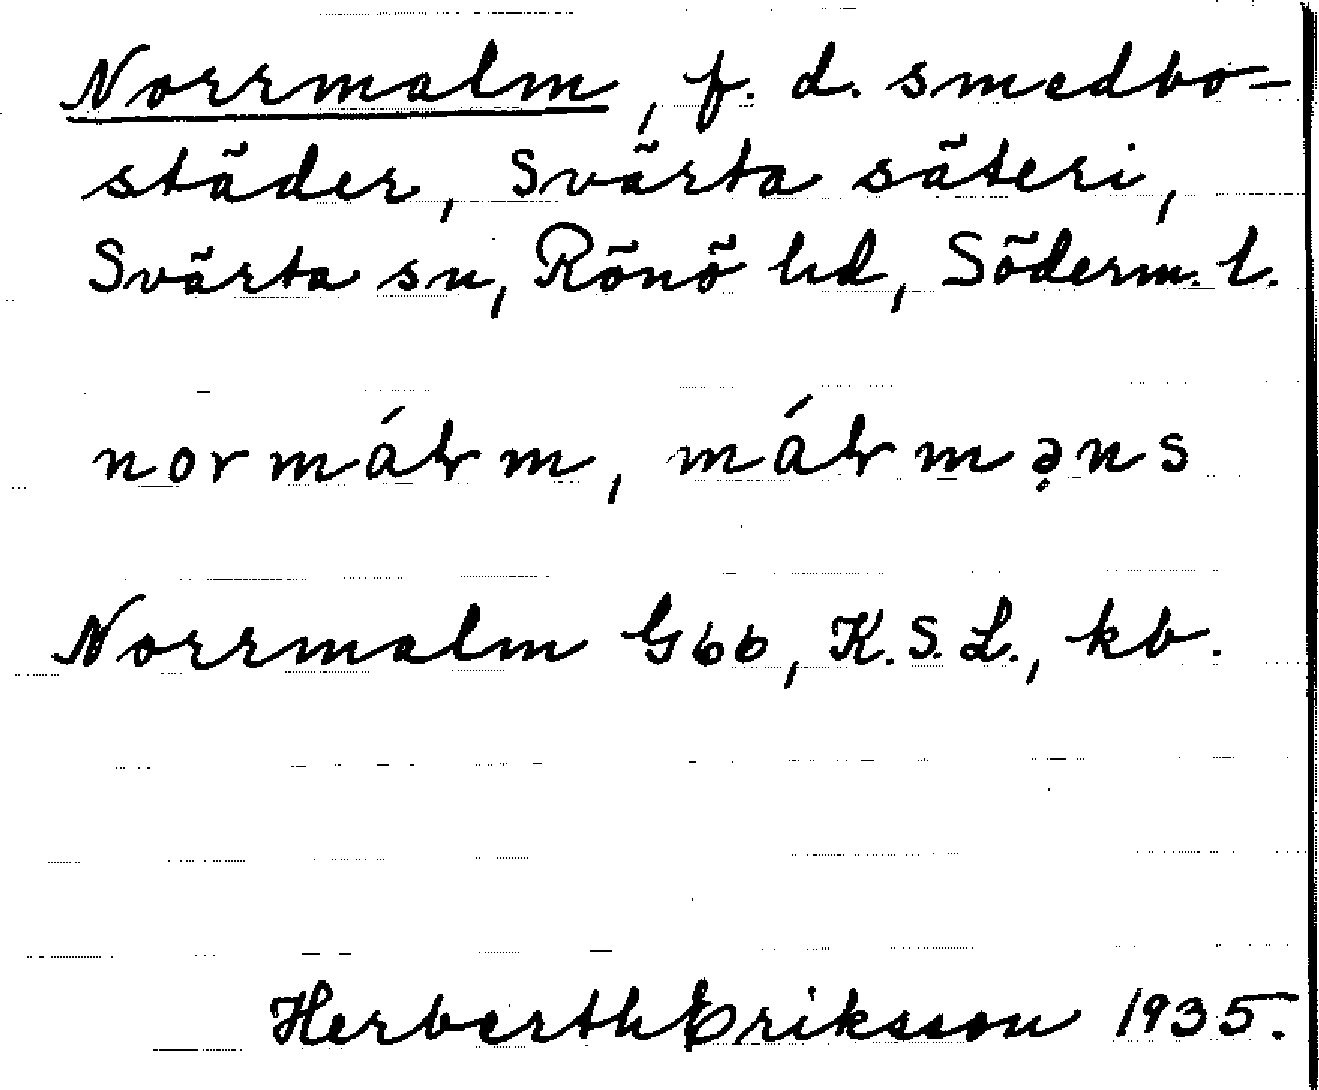 Norrmalm, f. d. smedbo-
städer, Svärta säteri,
Svärta sn, Rönö hd, Söderm. l.
normáɫm, máɫmə̣ns
Norrmalm Gbb, K.S.L., kb.
Herberth Eriksson 1935.